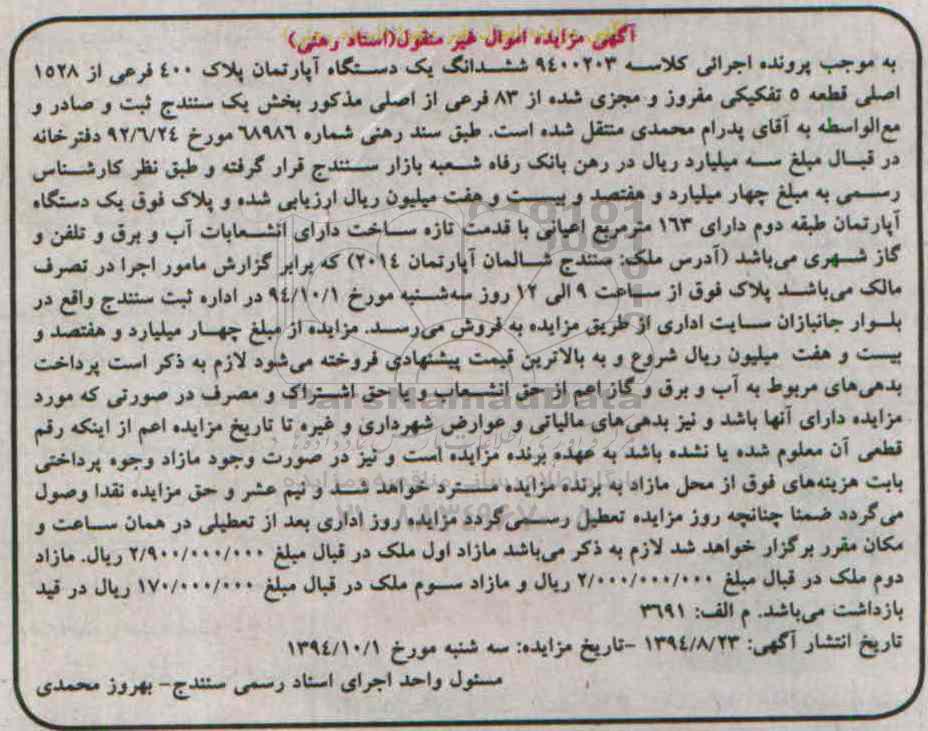 آگهی مزایده اموال غیر منقول(اسناد رهنی)
به موجب پرونده اجرائی کلاسه ۹۴۰۰۲۰۳ ششدانگ یک دستگاه آپارتمان پلاک ۴۰۰ فرعی از ۱۵۲۸
اصلی قطعه ۵ تفکیکی مفروز و مجزی شده از ۸۳ فرعی از اصلی مذکور بخش یک سنندج ثبت و صادر و
مع‌الواسطه به آقای پدرام محمدی منتقل شده است. طبق سند رهنی شماره ۶۸۹۸۶ مورخ ۹۲/۶/۲۴ دفترخانه
در قبال مبلغ سه میلیارد ریال در رهن بانک رفاه شعبه بازار سنندج قرار گرفته و طبق نظر کارشناس
رسمی به مبلغ چهار میلیارد و هفتصد و بیست و هفت میلیون ریال ارزیابی شده و پلاک فوق یک دستگاه
آپارتمان طبقه دوم دارای ۱۶۳ مترمربع اعیانی با قدمت تازه ساخت دارای انشعابات آب و برق و تلفن و
گاز شهری می‌باشد (آدرس ملک: سنندج شالمان آپارتمان ۲۰۱۴) که برابر گزارش مامور اجرا در تصرف
مالک می‌باشد پلاک فوق از ساعت ۹ الی ۱۲ روز سه‌شنبه مورخ ۹۴/۱۰/۱ در اداره ثبت سنندج واقع در
بلوار جانبازان سایت اداری از طریق مزایده به فروش می‌رسد. مزایده از مبلغ چهار میلیارد و هفتصد و
بیست و هفت میلیون ریال شروع و به بالاترین قیمت پیشنهادی فروخته می‌شود لازم به ذکر است پرداخت
بدهی‌های مربوط به آب و برق و گاز اعم از حق انشعاب و یا حق اشتراک و مصرف در صورتی که مورد
مزایده دارای آنها باشد و نیز بدهی‌های مالیاتی و عوارض شهرداری و غیره تا تاریخ مزایده اعم از اینکه رقم
قطعی آن معلوم شده یا نشده باشد به عهده برنده مزایده است و نیز در صورت وجود مازاد وجوه پرداختی
بابت هزینه‌های فوق از محل مازاد به برنده مزایده مسترد خواهد شد و نیم عشر و حق مزایده نقدا وصول
می‌گردد ضمنا چنانچه روز مزایده تعطیل رسمی‌گردد مزایده روز اداری بعد از تعطیلی در همان ساعت و
مکان مقرر برگزار خواهد شد لازم به ذکر می‌باشد مازاد اول ملک در قبال مبلغ ۲/۹۰۰/۰۰۰/۰۰۰ ریال. مازاد
دوم ملک در قبال مبلغ ۲/۰۰۰/۰۰۰/۰۰۰ ریال و مازاد سوم ملک در قبال مبلغ ۱۷۰/۰۰۰/۰۰۰ ریال در قید
بازداشت می‌باشد. م الف: ۳۶۹۱
تاریخ انتشار آگهی: ۱۳۹۴/۸/۲۳ -تاریخ مزایده: سه شنبه مورخ ۱۳۹۴/۱۰/۱
مسئول واحد اجرای اسناد رسمی سنندج- بهروز محمدی
ParsNamadData